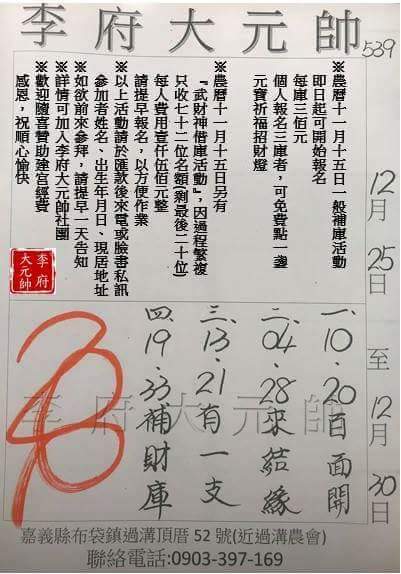 李府大元帥
539
※農曆十一月十五日一般補庫活動
即日起可開始報名
每庫三佰元
個人報名三庫者，可免費點一盞
元寶祈福招財燈
※農曆十一月十五日另有
『武財神借庫活動』，因過程繁複
只收七十二位名額(剩最後二十位)
每人費用壹仟伍佰元整
請提早報名，以方便作業
※以上活動請於匯款後來電或臉書私訊
參加者姓名、出生年月日、現居地址
※如欲前來參拜，請提早一天告知
※詳情可加入李府大元帥社團
※歡迎隨喜贊助建宮經費
感恩，祝順心愉快
李府
大元帥
12月25日至12月30日
一、10、20百面開
二、04、28來結緣
三、13、21有一支
四、19、33補財庫
李府大元帥
嘉義縣布袋鎮過溝頂厝52號(近過溝農會)
聯絡電話:0903-397-169